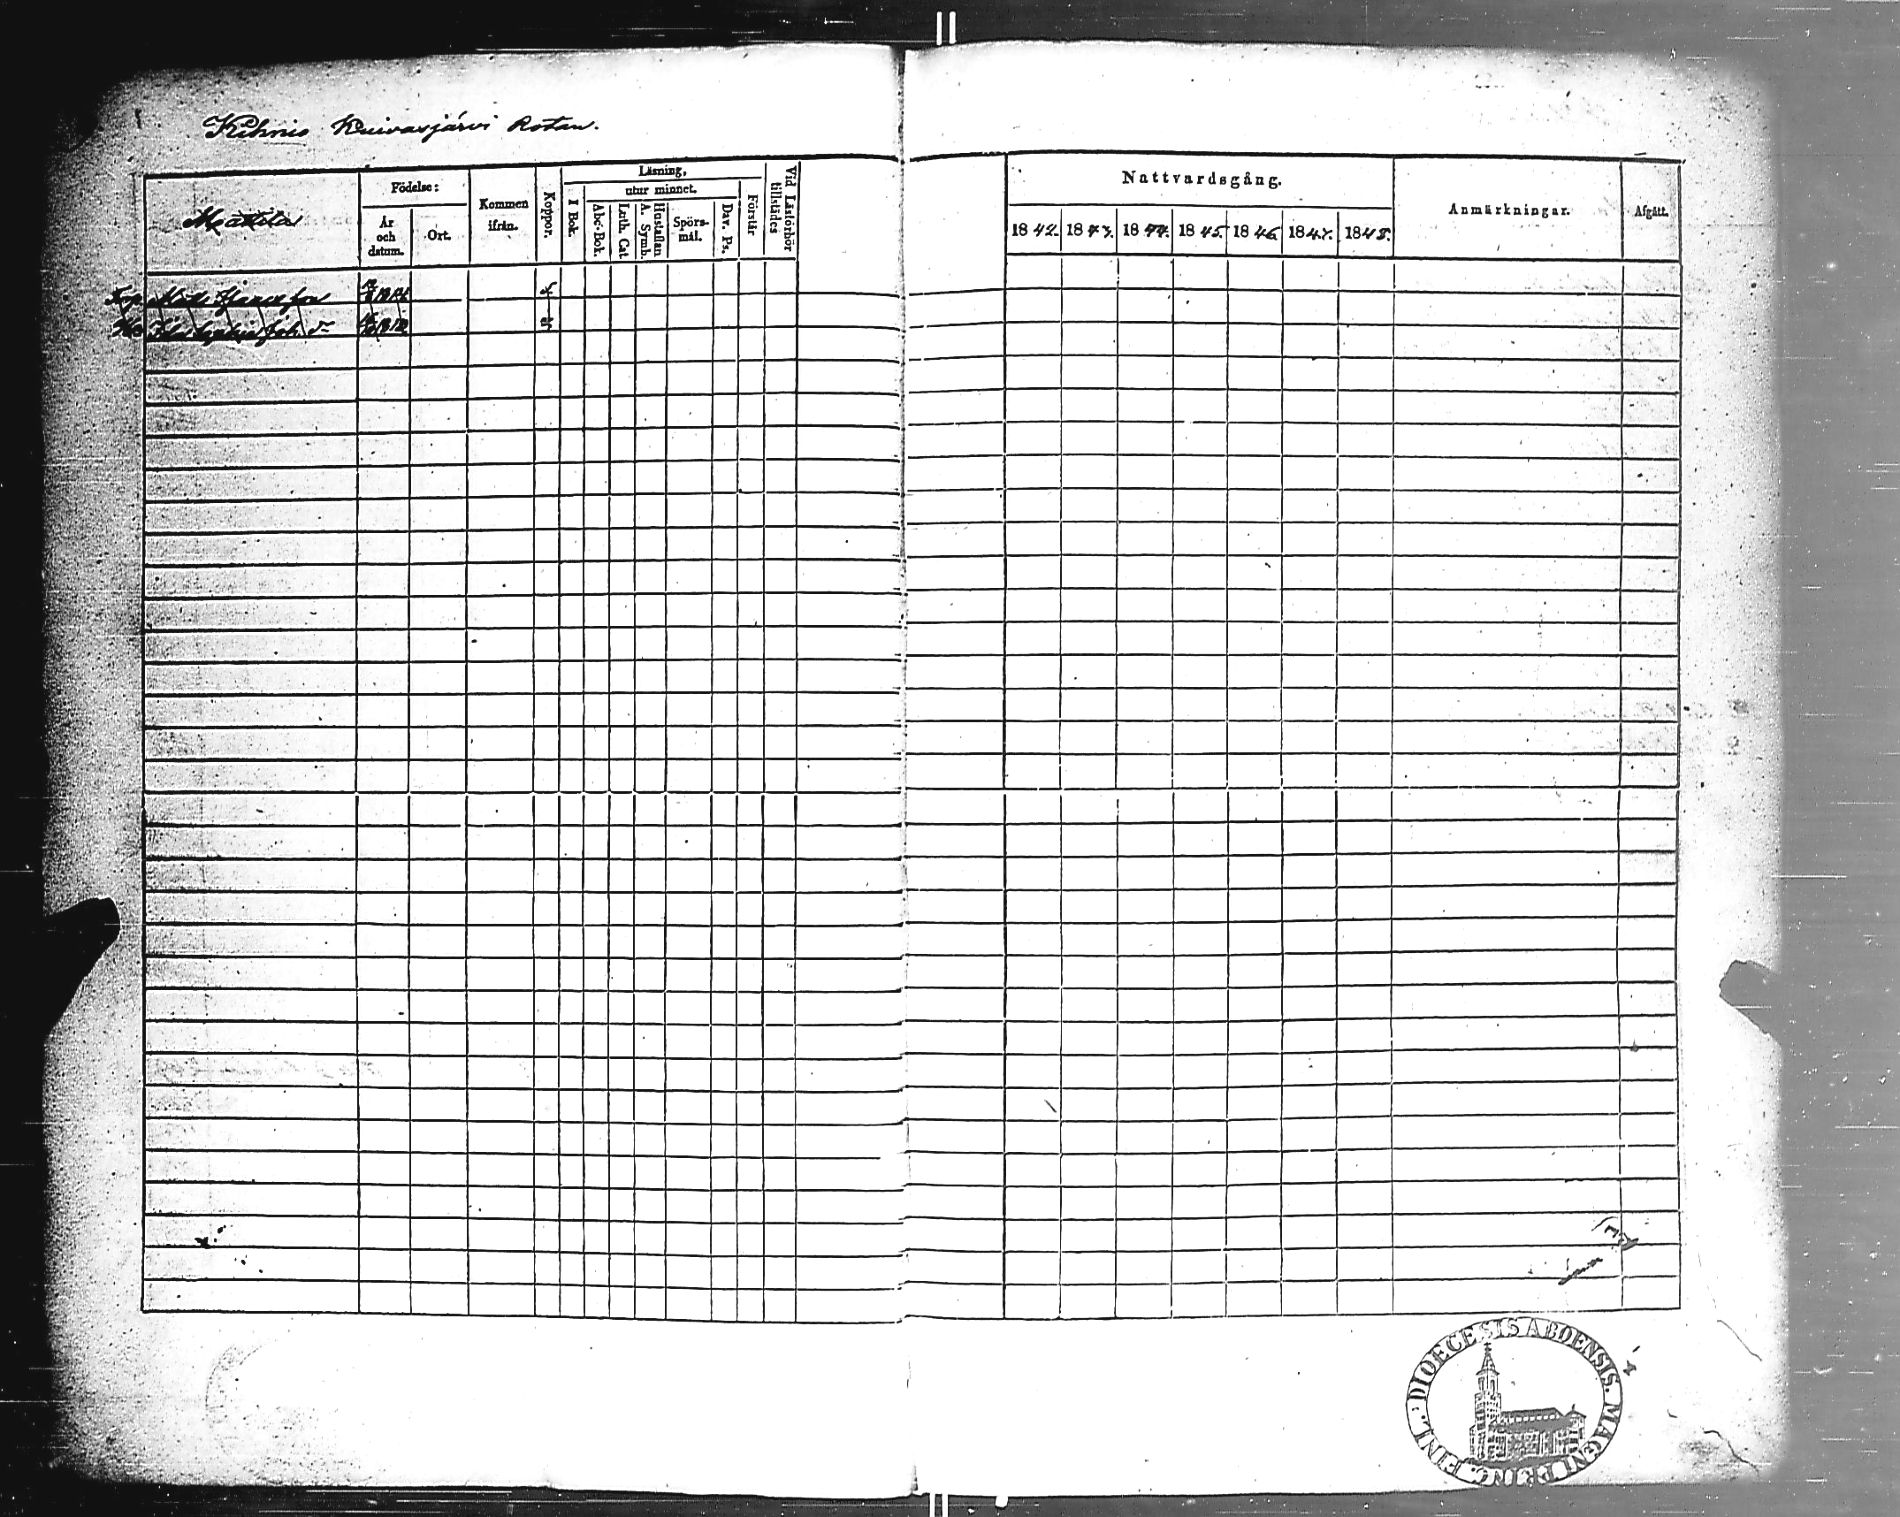 Kihnis Kuivasjärvi Rotan.
Mäkilä
Födelse:
År och datum.
Ort.
Kommen ifrån.
Koppor.
Läsning,
utur minnet.
I Bok.
Abc-Bok.
Luth. Cat
Hustaflan A. Symb.
Spörsmål.
Dav. Ps.
Förstår
Vid Läsförhör tillstädes
Nattvardsgång.
1842. 1843. 1844. 1845. 1846. 1847. 1848.
Anmärkningar.
Afgått.
1814
DIOECESIS ABOENSIS. MAGNI PRINC. FINL.: